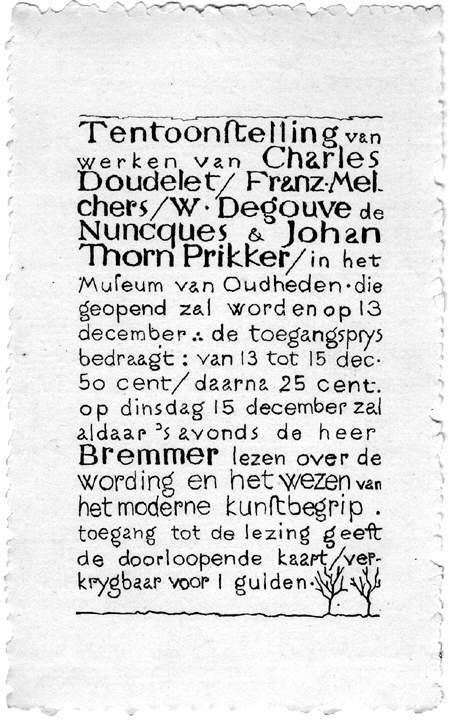 Tentoonſtelling van
werken van Charles
Doudelet/ Franz·Mel-
chers/W· Degouve de
Nuncques & Johan
Thorn Prikker/in het
Muſeum van Oudheden·die
geopend zal worden op 13
december ∴ de toegangsprys
bedraagt: van 13 tot 15 dec·
50 cent/daarna 25 cent.
op dinsdag 15 december zal
aldaar 's avonds de heer
Bremmer lezen over de
wording en het wezen van
het moderne kunſtbegrip .
toegang tot de lezing geeft
de doorloopende kaart/ver-
krygbaar voor 1 gulden·